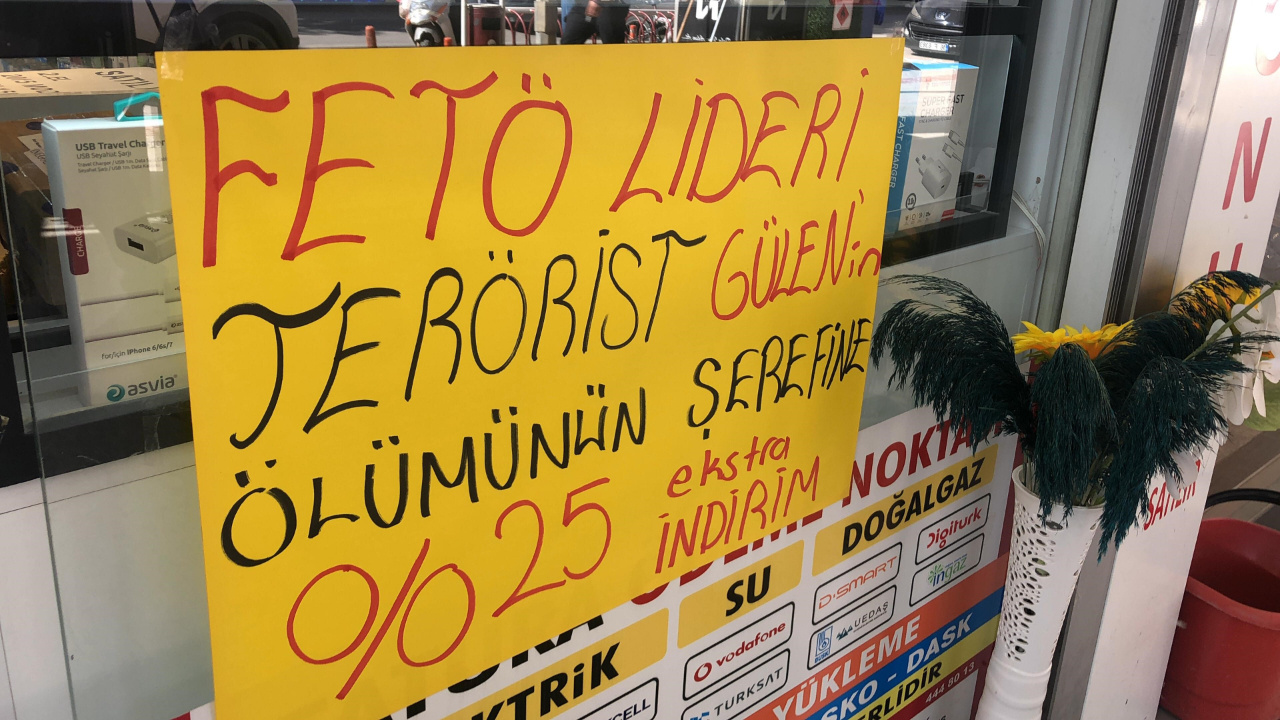 FETÖ LİDERİ
TERÖRİST GÜLENin
ÖLÜMÜNÜN ŞEREFİNE
%25 ekstra
İNDİRİM
USB Travel Charger
USB Seyahat Şarjı
CHARGE
for/için iPhone 6/6s/7
asvia
SUPER FAST
CHARGER
FAST CHARGER
SU
DOĞALGAZ
vodafone
TURKSAT
D-SMART
UEDAŞ
Digiturk
ingaz
YÜKLEME
DASK
444 80 13